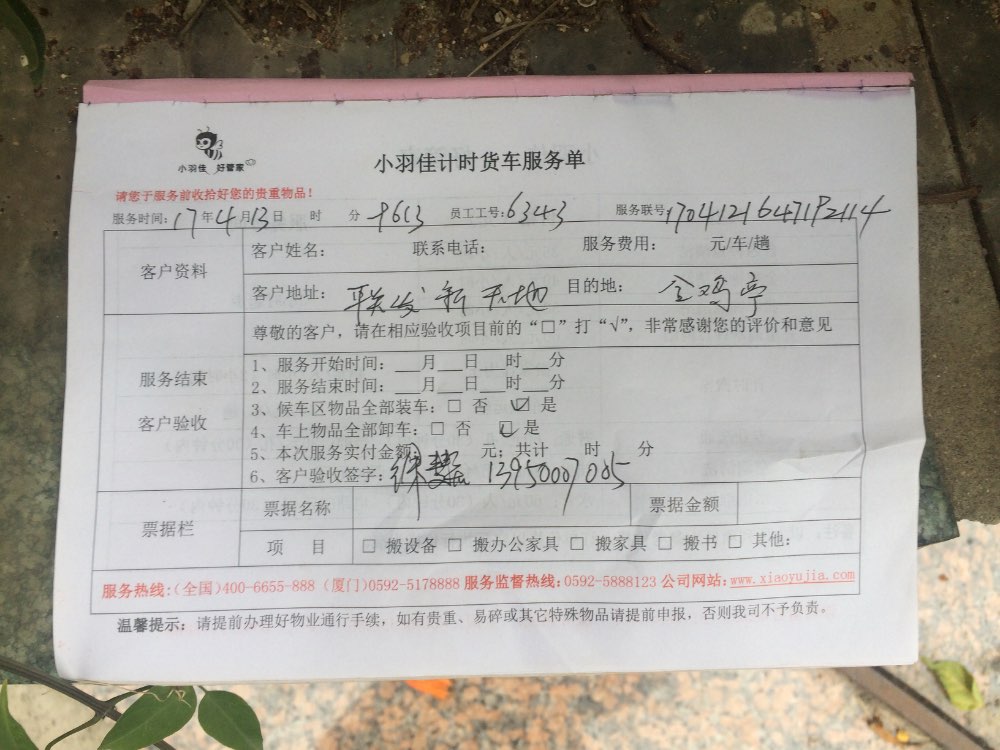 小羽佳 好管家
小羽佳计时货车服务单
请您于服务前收拾好您的贵重物品！
服务时间：17年4月13日 时 分 9613 员工工号：6343 服务联号1704121647192114
客户资料
客户姓名： 联系电话： 服务费用： 元/车/趟
客户地址： 联发新天地 目的地： 金鸡亭
服务结束
客户验收
尊敬的客户，请在相应验收项目前的“□”打“√”，非常感谢您的评价和意见
1、服务开始时间：___月___日___时___分
2、服务结束时间：___月___日___时___分
3、候车区物品全部装车：□ 否 ☑ 是
4、车上物品全部卸车：□ 否 ☑ 是
5、本次服务实付金额： 元；共计 时 分
6、客户验收签字： 13950007005
票据栏
票据名称 票据金额
项 目 □ 搬设备 □ 搬办公家具 □ 搬家具 □ 搬书 □ 其他：
服务热线：(全国)400-6655-888 (厦门)0592-5178888 服务监督热线：0592-5888123 公司网站：www.xiaoyujia.com
温馨提示：请提前办理好物业通行手续，如有贵重、易碎或其它特殊物品请提前申报，否则我司不予负责。